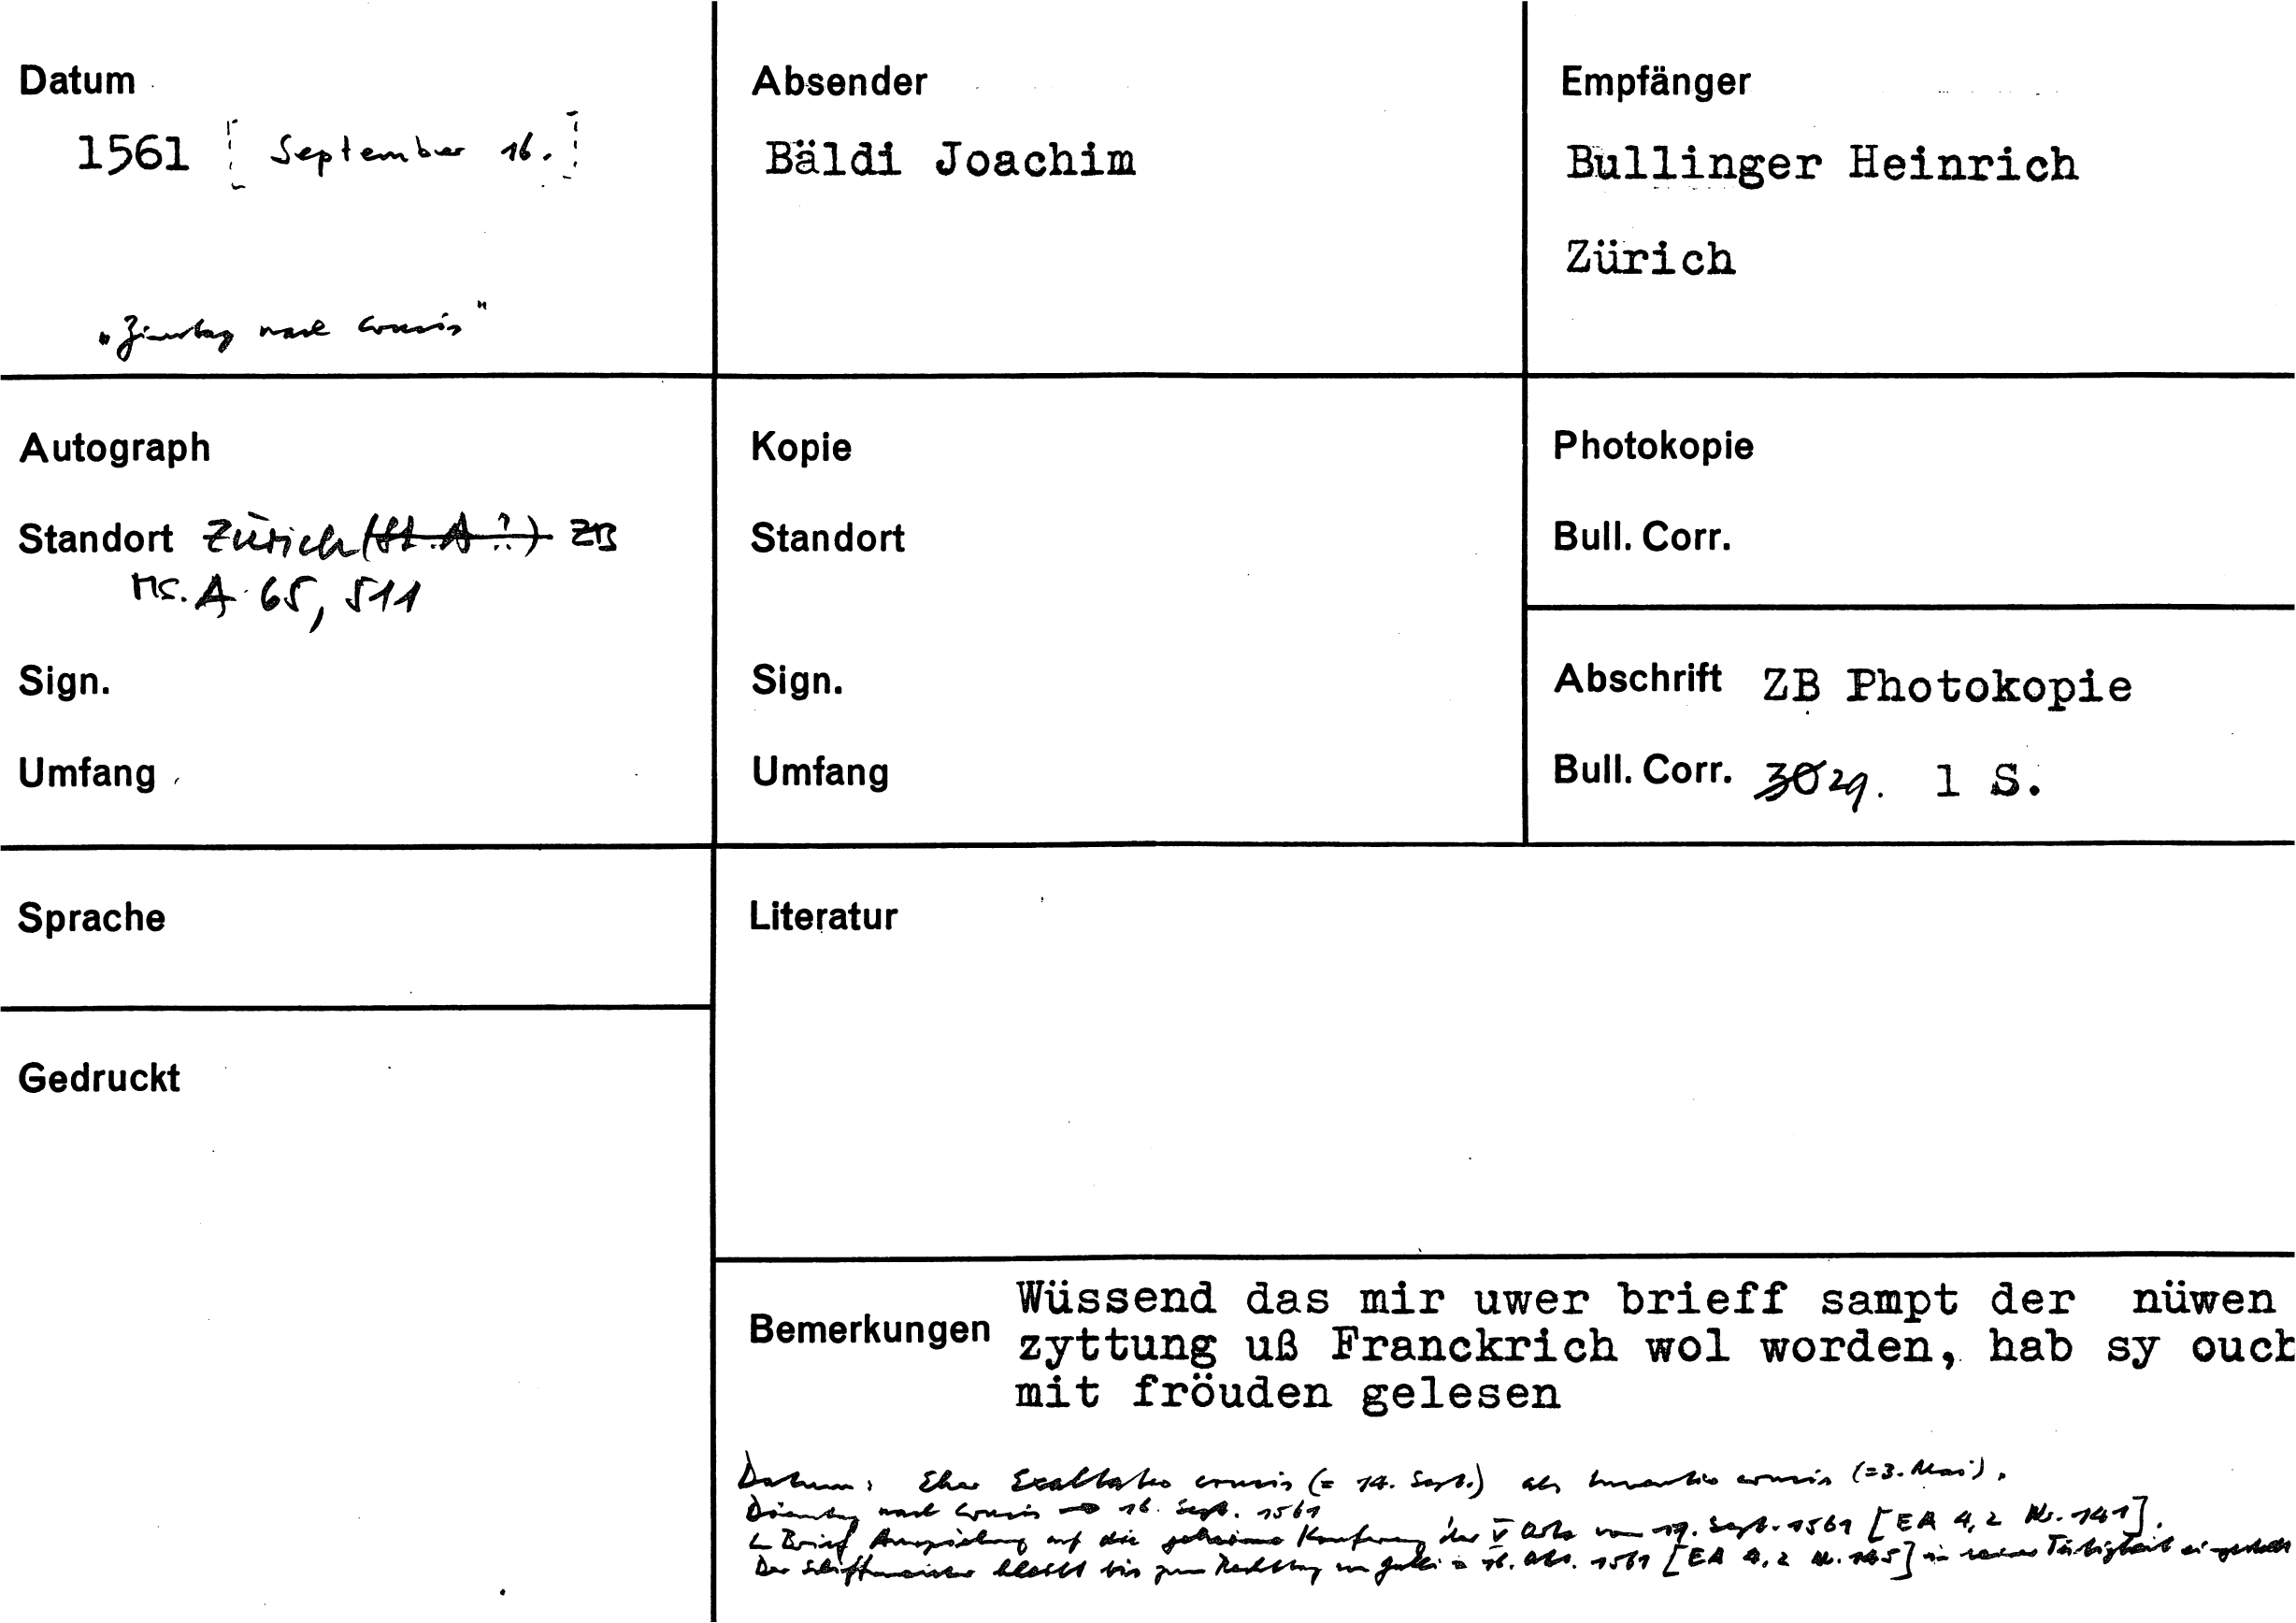 Datum
1561 [September 16.]
"Zinstag nach Crucis"
Absender
Bäldi Joachim
Empfänger
Bullinger Heinrich
Zürich
Autograph
Standort Zürich (St.A ?) ZB
Ms. A 65, 511
Sign.
Umfang
Kopie
Standort
Sign.
Umfang
Photokopie
Bull. Corr.
Abschrift ZB Photokopie
Bull. Corr. 30 29. 1 S.
Sprache
Gedruckt
Literatur
Bemerkungen
Wüssend das mir uwer brieff sampt der nüwen
zyttung uß Franckrich wol worden, hab sy ouch
mit fröuden gelesen
Datum: Eher Exaltatio crucis (= 14. Sept.) als Inventio crucis (=3. Mai).
Dienstag nach Crucis → 16. Sept. 1561
Brief Anspielung auf die geheime Konferenz der V Orte vom 17. Sept. 1561 [EA 4,2 Nr. 141].
Der Schiffmeister bleibt bis zum Rechttag im Galli = 16. Okt. 1561 [EA 4,2 Nr. 145] in seiner Tätigkeit eingestellt